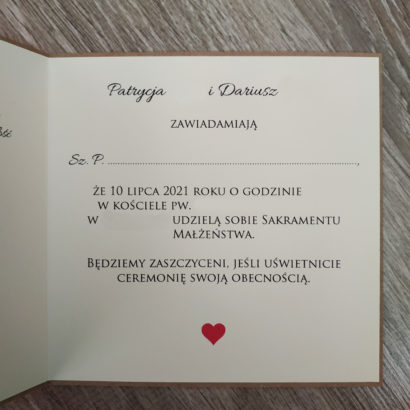 Patrycja i Dariusz
ZAWIADAMIAJĄ
Sz. P. ....................................................................................,
ŻE 10 LIPCA 2021 ROKU O GODZINIE
W KOŚCIELE PW.
W UDZIELĄ SOBIE SAKRAMENTU
MAŁŻEŃSTWA.
BĘDZIEMY ZASZCZYCENI, JEŚLI UŚWIETNICIE
CEREMONIĘ SWOJĄ OBECNOŚCIĄ.